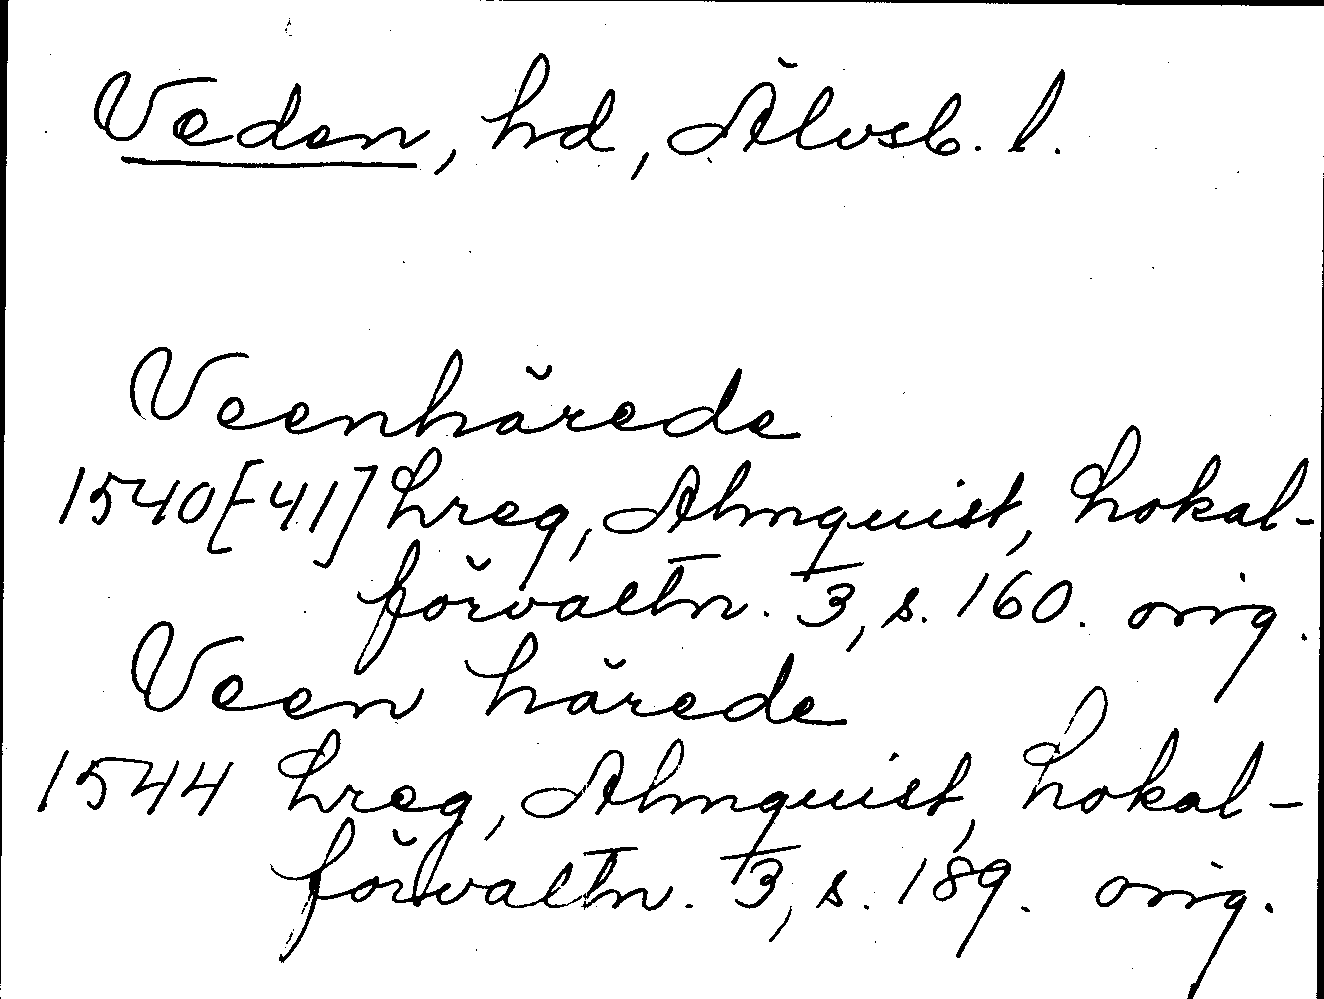 Veden, hd, Älvsb. l.
Veenhärede
1540[-41] Lreg, Almquist, Lokal-
förvaltn. 3, s. 160. orig.
Veen härede
1544 Lreg, Almquist, Lokal-
förvaltn. 3, s. 189. orig.